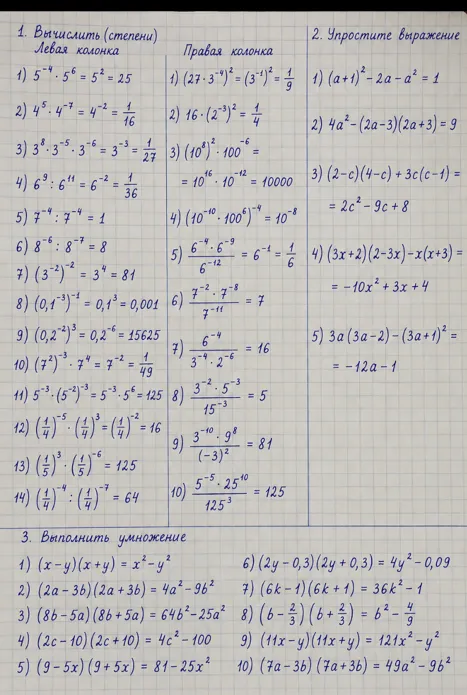 1. Вычислить (степени)
Левая колонка
1) 5⁻⁴ · 5⁶ = 5² = 25
2) 4⁵ · 4⁻⁷ = 4⁻² = 1/16
3) 3⁸ · 3⁻⁵ · 3⁻⁶ = 3⁻³ = 1/27
4) 6⁹ : 6¹¹ = 6⁻² = 1/36
5) 7⁻⁴ : 7⁻⁴ = 1
6) 8⁻⁶ : 8⁻⁷ = 8
7) (3⁻²)⁻² = 3⁴ = 81
8) (0,1⁻³)⁻¹ = 0,1³ = 0,001
9) (0,2⁻²)³ = 0,2⁻⁶ = 15625
10) (7²)⁻³ · 7⁴ = 7⁻² = 1/49
11) 5⁻³ · (5⁻²)⁻³ = 5⁻³ · 5⁶ = 125
12) (1/4)⁻⁵ · (1/4)³ = (1/4)⁻² = 16
13) (1/5)³ · (1/5)⁻⁶ = 125
14) (1/4)⁻⁴ : (1/4)⁻⁷ = 64
Правая колонка
1) (27 · 3⁻⁴)² = (3⁻¹)² = 1/9
2) 16 · (2⁻³)² = 1/4
3) (10⁸)² · 100⁻⁶ =
= 10¹⁶ · 10⁻¹² = 10000
4) (10⁻¹⁰ · 100⁶)⁻⁴ = 10⁻⁸
5) (6⁻⁴ · 6⁻⁹)/6⁻¹² = 6⁻¹ = 1/6
6) (7⁻² · 7⁻⁸)/7⁻¹¹ = 7
7) 6⁻⁴/(3⁻⁴ · 2⁻⁶) = 16
8) (3⁻² · 5⁻³)/15⁻³ = 5
9) (3⁻¹⁰ · 9⁸)/(-3)² = 81
10) (5⁻⁵ · 25¹⁰)/125³ = 125
2. Упростите выражение
1) (a+1)² - 2a - a² = 1
2) 4a² - (2a-3)(2a+3) = 9
3) (2-c)(4-c) + 3c(c-1) =
= 2c² - 9c + 8
4) (3x+2)(2-3x) - x(x+3) =
= -10x² + 3x + 4
5) 3a(3a-2) - (3a+1)² =
= -12a - 1
3. Выполнить умножение
1) (x-y)(x+y) = x² - y²
2) (2a-3b)(2a+3b) = 4a² - 9b²
3) (8b-5a)(8b+5a) = 64b² - 25a²
4) (2c-10)(2c+10) = 4c² - 100
5) (9-5x)(9+5x) = 81 - 25x²
6) (2y-0,3)(2y+0,3) = 4y² - 0,09
7) (6k-1)(6k+1) = 36k² - 1
8) (b - 2/3)(b + 2/3) = b² - 4/9
9) (11x-y)(11x+y) = 121x² - y²
10) (7a-3b)(7a+3b) = 49a² - 9b²